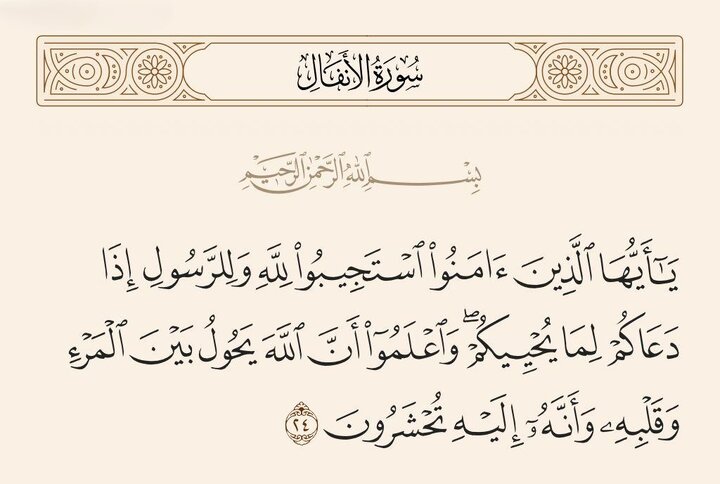 سُورَةُ الأَنفَالِ
بِسْمِ ٱللَّهِ ٱلرَّحْمَٰنِ ٱلرَّحِيمِ
يَـٰٓأَيُّهَا ٱلَّذِينَ ءَامَنُوا۟ ٱسْتَجِيبُوا۟ لِلَّهِ وَلِلرَّسُولِ إِذَا
دَعَاكُمْ لِمَا يُحْيِيكُمْ ۖ وَٱعْلَمُوٓا۟ أَنَّ ٱللَّهَ يَحُولُ بَيْنَ ٱلْمَرْءِ
وَقَلْبِهِۦ وَأَنَّهُۥٓ إِلَيْهِ تُحْشَرُونَ ٢٤